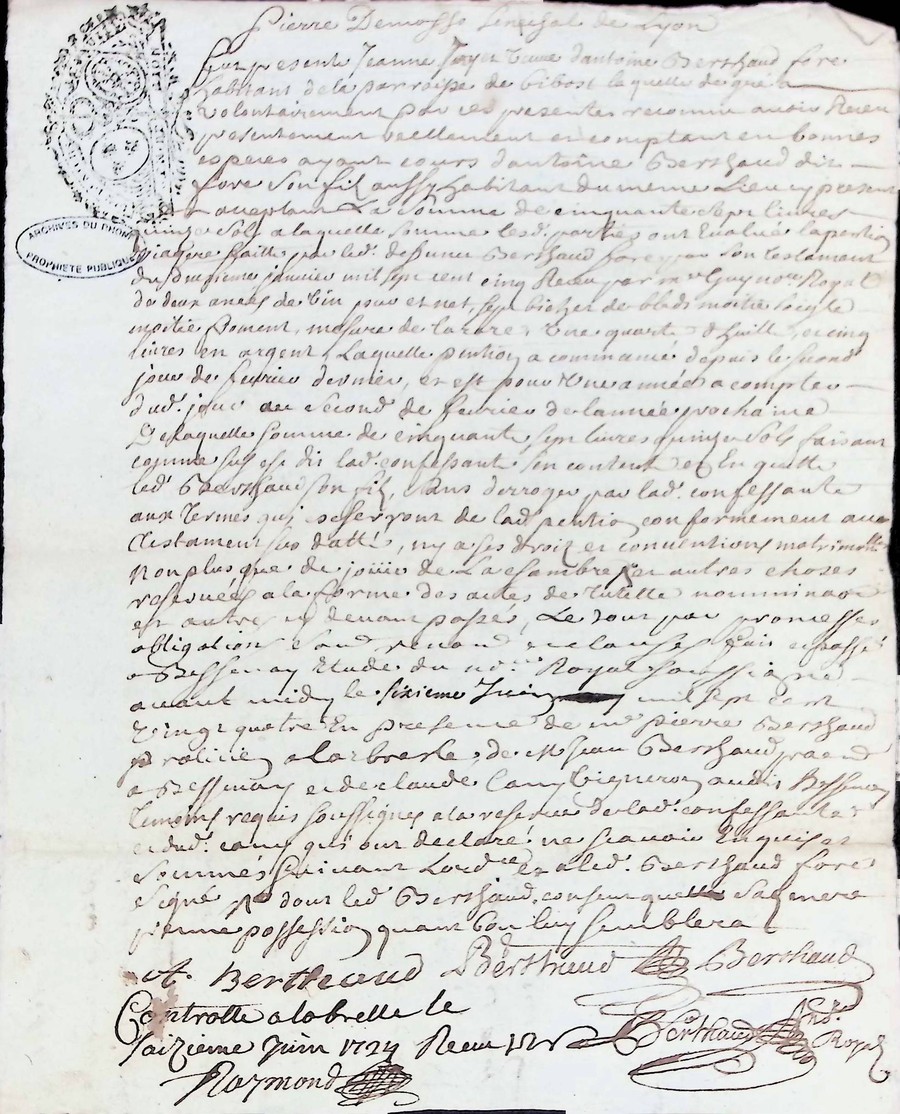 Pierre Demosso Senechal de Lyon
Fut presente Jeanne veuve d'antoine Berthaud fore
habitant de la parroisse de bibost laquelle de gré a
volontairement par ces presentes reconnu avoir Receu
presentement reellement et comptant en bonnes
especes ayant cours d'antoine Berthaud dit
fore son fils aussy habitant du meme Lieu cy present
et acceptant La somme de cinquante sept livres
ARCHIVES DU RHONE
PROPRIETE PUBLIQUE
quinze sols a laquelle somme lesd. parties ont Evalué la pention
viagere faitte par led. deffunct Berthaud fore par son testament
du janvier mil sept cent cinq Receu par me Guy nore Royal
de deux anées de vin pur et net, sept bichet de bleds moitié soigle
moitié froment, mesure de larare, Une quarte d'huille, et cinq
livres en argent, Laquelle pention a commancé depuis le second
jour de fevrier dernier, et est pour Une année a compter
dud. jour au second de fevrier de lannée prochaine
De laquelle somme de cinquante sept livres quinze sols faisant
comme sus est dit lad. confessante s'en contente et En quitte
led. Berthaud son fils, sans derroger par lad. confessante
aux termes qui escherront de lad. pention conformement au
testament sus datté, ny a ses droits et conventions matrimlles
Non plus que de jouir de La chambre et autres choses
reservées a la forme des actes de tutelle nomminage
et autres cy devant passés, Le tout par promesses
obligations renon et clauses fait et passé
a Bessenay Etude du nore Royal soussigné
avant midy le sixieme Juin mil sept cent
vingt quatre En presence de me pierre Berthaud
praticien a larbresle, de Mr jean Berthaud
a Bessenay et de claude Cany Vigneron audit Bessenay
temoins requis soussignes a la reserve de lad. confessante
et dud. cany qui ont declaré ne scavoir Enquis et
sommés suivant Lordce et a led. Berthaud fore
signé dont led. Berthaud
possession quant bon luy semblera
A Berthaud Berthaud Berthaud
Controllé a la brelle le
saizieme Juin 1724 Receu Berthaud Royal
Raymond